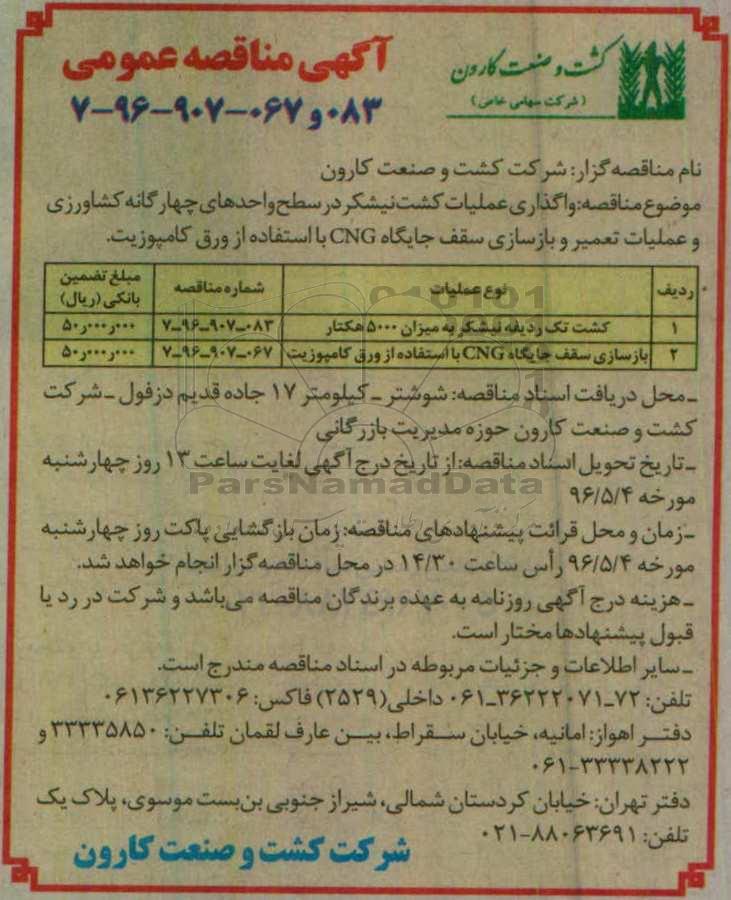 کشت و صنعت کارون
(شرکت سهامی خاص)
آگهی مناقصه عمومی
۰۸۳ و ۰۶۷-۹۰۷-۹۶-۷
نام مناقصه‌گزار: شرکت کشت و صنعت کارون
موضوع مناقصه: واگذاری عملیات کشت نیشکر در سطح واحدهای چهارگانه کشاورزی
و عملیات تعمیر و بازسازی سقف جایگاه CNG با استفاده از ورق کامپوزیت.
ردیف نوع عملیات شماره مناقصه مبلغ تضمین بانکی (ریال)
۱ کشت تک ردیفه نیشکر به میزان ۵۰۰۰ هکتار ۰۸۳-۹۰۷-۹۶-۷ ۵۰ر۰۰۰ر۰۰۰
۲ بازسازی سقف جایگاه CNG با استفاده از ورق کامپوزیت ۰۶۷-۹۰۷-۹۶-۷ ۵۰ر۰۰۰ر۰۰۰
ـ محل دریافت اسناد مناقصه: شوشتر ـ کیلومتر ۱۷ جاده قدیم دزفول ـ شرکت
کشت و صنعت کارون حوزه مدیریت بازرگانی
ـ تاریخ تحویل اسناد مناقصه: از تاریخ درج آگهی لغایت ساعت ۱۳ روز چهارشنبه
ParsNamadData
مورخه ۹۶/۵/۴
ـ زمان و محل قرائت پیشنهادهای مناقصه: زمان بازگشایی پاکت روز چهارشنبه
مورخه ۹۶/۵/۴ رأس ساعت ۱۴/۳۰ در محل مناقصه‌گزار انجام خواهد شد.
ـ هزینه درج آگهی روزنامه به عهده برندگان مناقصه می‌باشد و شرکت در رد یا
قبول پیشنهادها مختار است.
ـ سایر اطلاعات و جزئیات مربوطه در اسناد مناقصه مندرج است.
تلفن: ۷۲-۳۶۲۲۲۰۷۱-۰۶۱ داخلی (۲۵۲۹) فاکس: ۰۶۱۳۶۲۲۷۳۰۶
دفتر اهواز: امانیه، خیابان سقراط، بین عارف لقمان تلفن: ۳۳۳۳۵۸۵۰ و
۰۶۱-۳۳۳۳۸۲۲۲
دفتر تهران: خیابان کردستان شمالی، شیراز جنوبی بن‌بست موسوی، پلاک یک
تلفن: ۸۸۰۶۳۶۹۱-۰۲۱
شرکت کشت و صنعت کارون